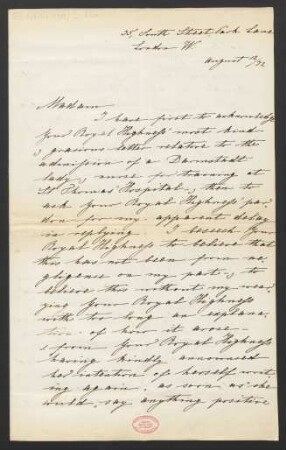 35, South Street, Park Lane
London W.
August 3/72
Madam
I have first to acknowledge
Your Royal Highness' most kind
& gracious letter relative to the
admission of a Darmstadt
lady, nurse for training at
St Thomas' Hospital, & then to
ask Your Royal Highness' par-
don for my apparent delay
in replying. I beseech Your
Royal Highness to believe that
this has not been from ne-
gligence on my part, & to
believe this without my wea-
rying Your Royal Highness
with too long an explana-
tion of how it arose
from Your Royal Highness
having kindly announced
her intention of herself writ-
ing again, as soon as she
could say anything positive